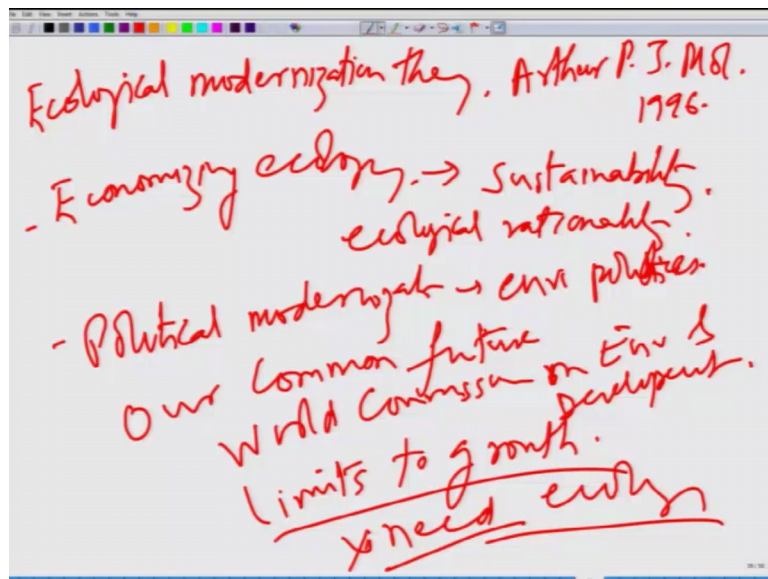 Ecological modernization they. Arthur P. J. Mol.
1996.
- Economizing ecology. → sustainability.
ecological rationality.
- Political modernizat → envi politics
Our common future
World Commission on Env &
Development.
limits to growth.
need ecology